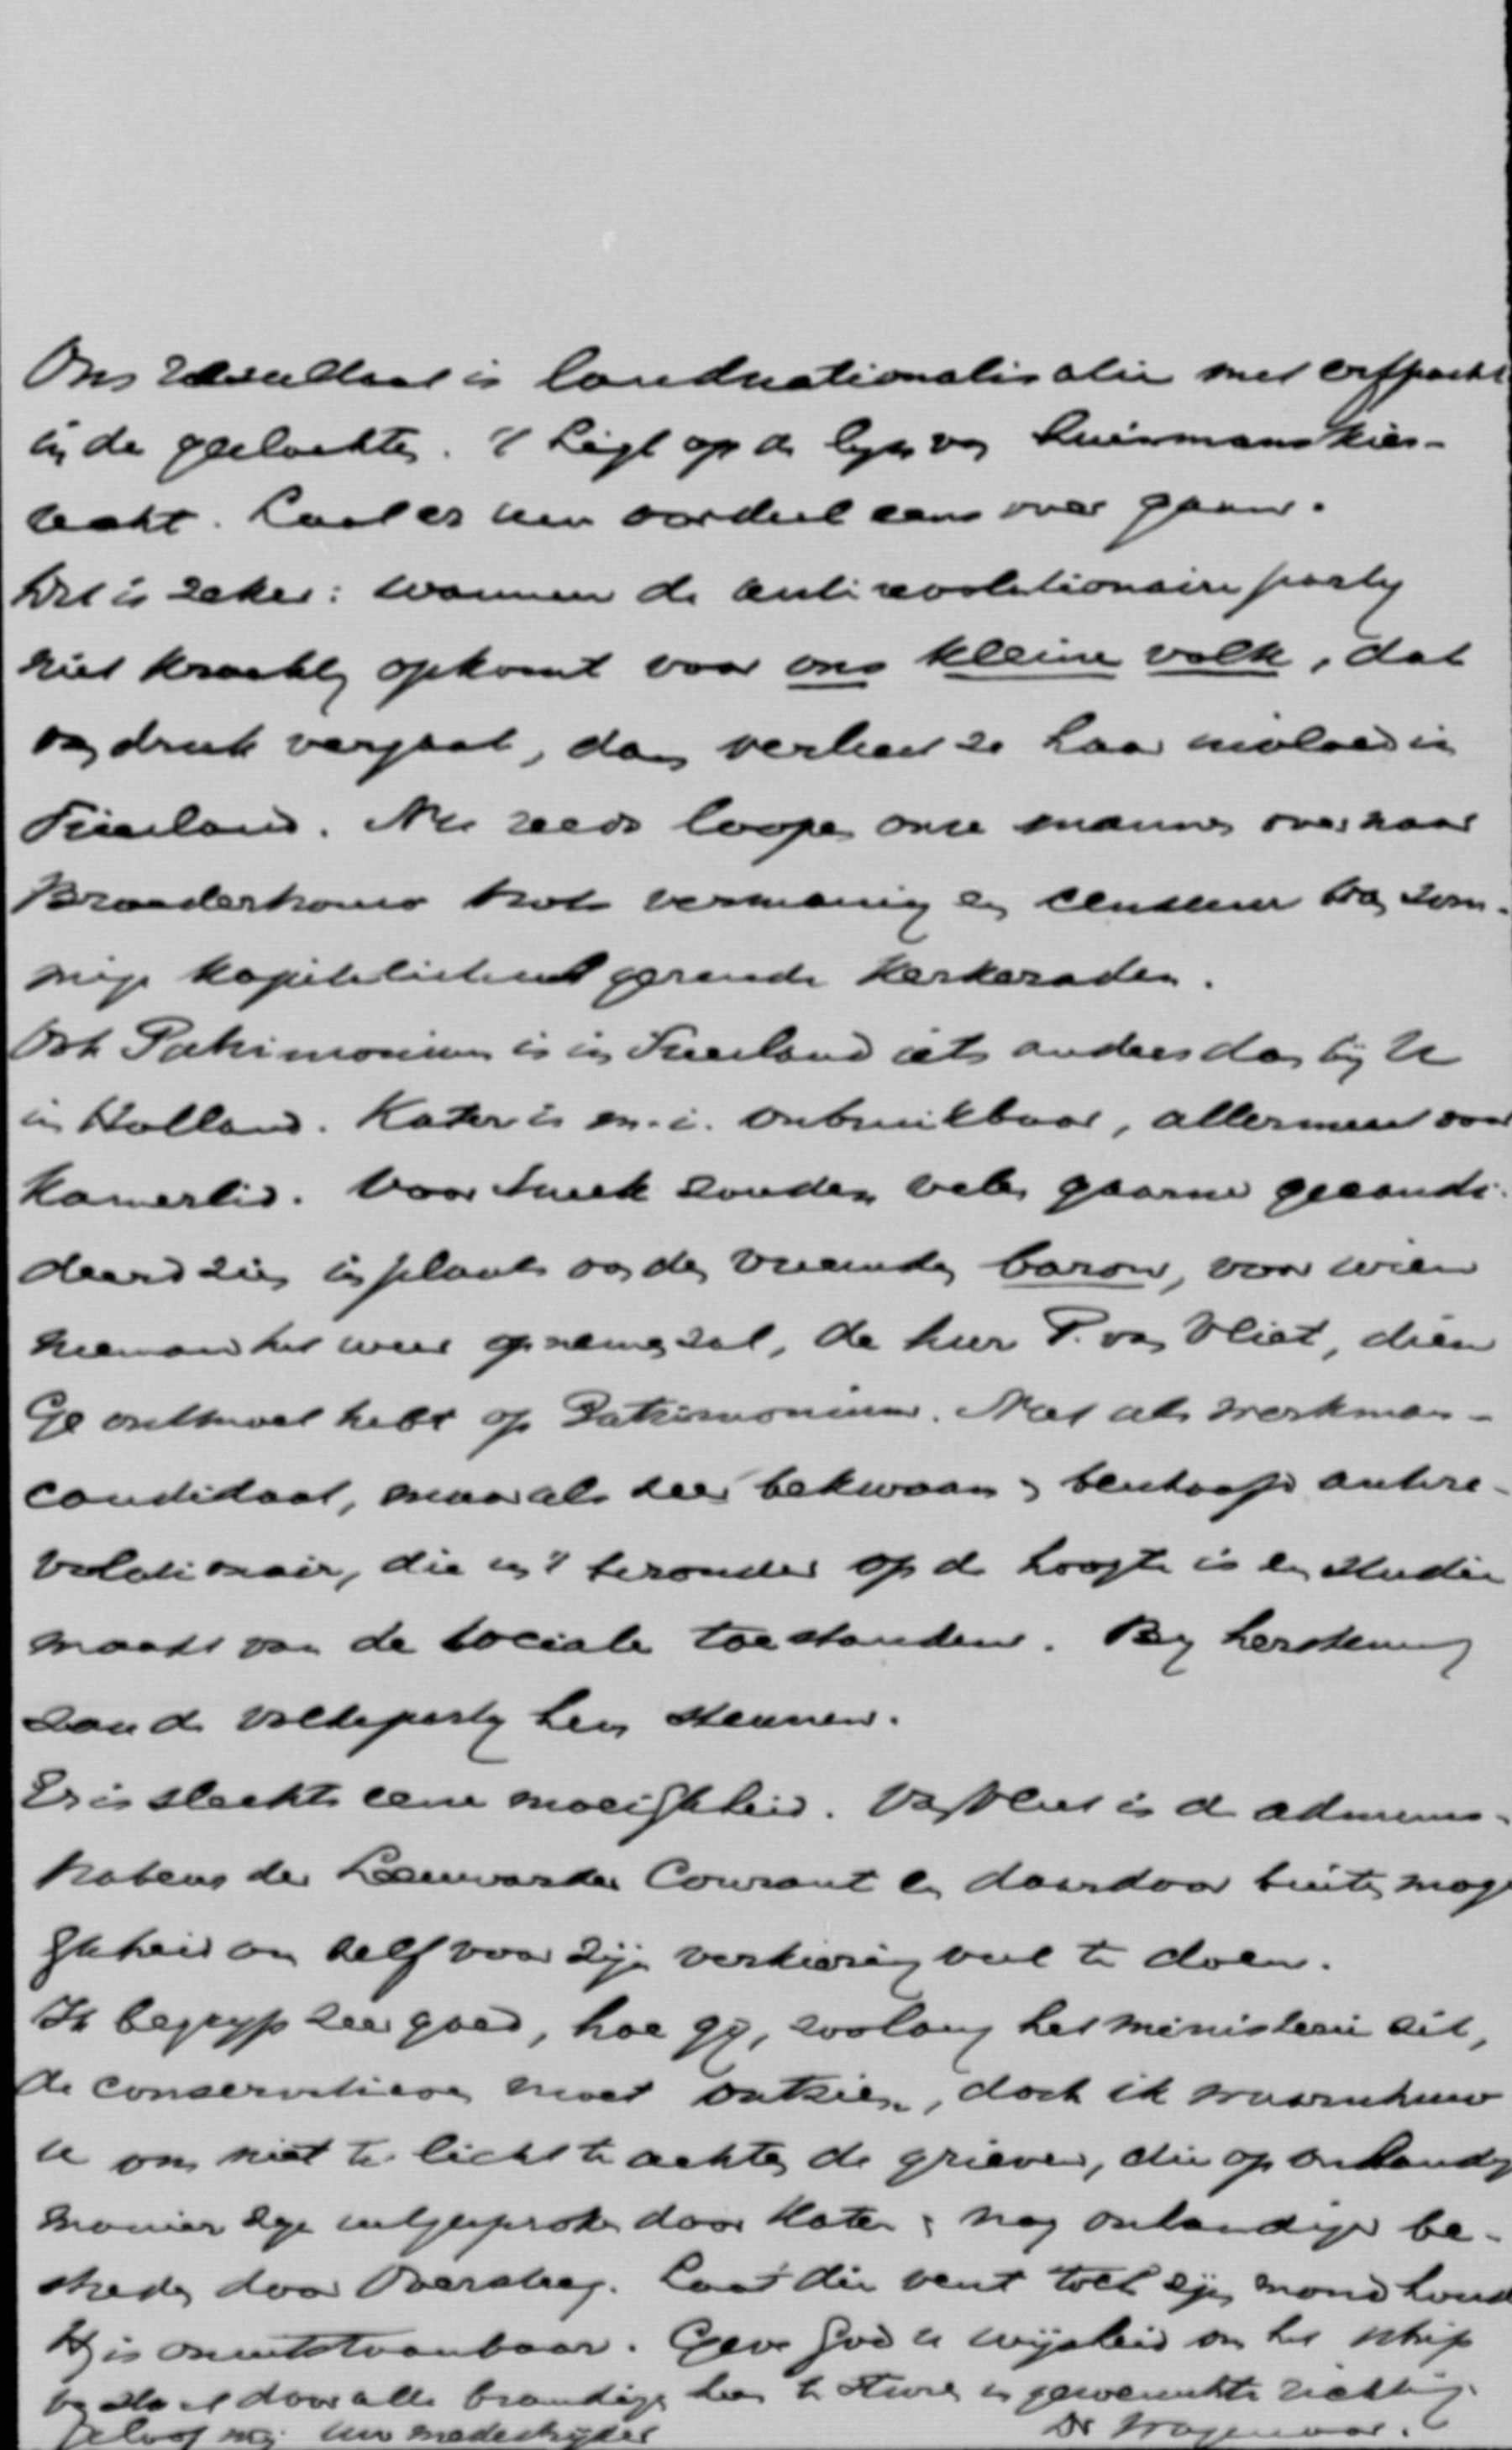 Ons resultaat is landnationalisatie met erfpacht
in de gedachte. 't Ligt op de lijn van huismanskies-
recht. Laat er uw oordeel eens over gaan.
Dit is zeker: wanneer de antirevolutionaire party
niet krachtig opkomt voor ons kleine volk, dat
van druk vergaat, dan verliest ze haar invloed in
Friesland. Nu reeds loopen onze mannen over naar
Broederkomo trots vermaning en censuur van som-
mige kapitalistisch gerende kerkeraden.
Ook Patrimonium is in Friesland iets anders dan bij U
in Holland. Kater is m.i. onbruikbaar, allermeest voor
Kamerlid. Voor Sneek zouden velen gaarne gecandi-
deerd zien in plaats van den vreemden baron, voor wien
niemand het weer opnemen zal, de heer P. van Vliet, dien
Ge ontmoet hebt op Patrimonium. Niet als werkman-
candidaat, maar als zeer bekwaam en beslist antire-
volutionair, die in 't bizonder op de hoogte is en studie
maakt van de sociale toestanden. By herstemming
zou de volksparty hem steunen.
Er is slechts eene moeijlykheid. Van Vliet is de adminis-
trateur der Leeuwarder Courant en daardoor buiten moge-
lykheid om zelf voor zijn verkiezing veel te doen.
Ik begryp zeer goed, hoe gy, zoolang het ministerie zit,
de conservatieven moet ontzien, doch ik waarschuw
U om niet te licht te achten de grieven, die op onhandige
manier zyn uitgesproken door Kater en nog onhandiger be-
streden door Oversteeg. Laat die vent toch zyn mond houden
Hy is onuitstaanbaar. Geve God U wijsheid om het schip
van Staat door alle branding heen te sturen in gewenschte richting.
Geloof mij Uw medestryder Dr Wagenaar.